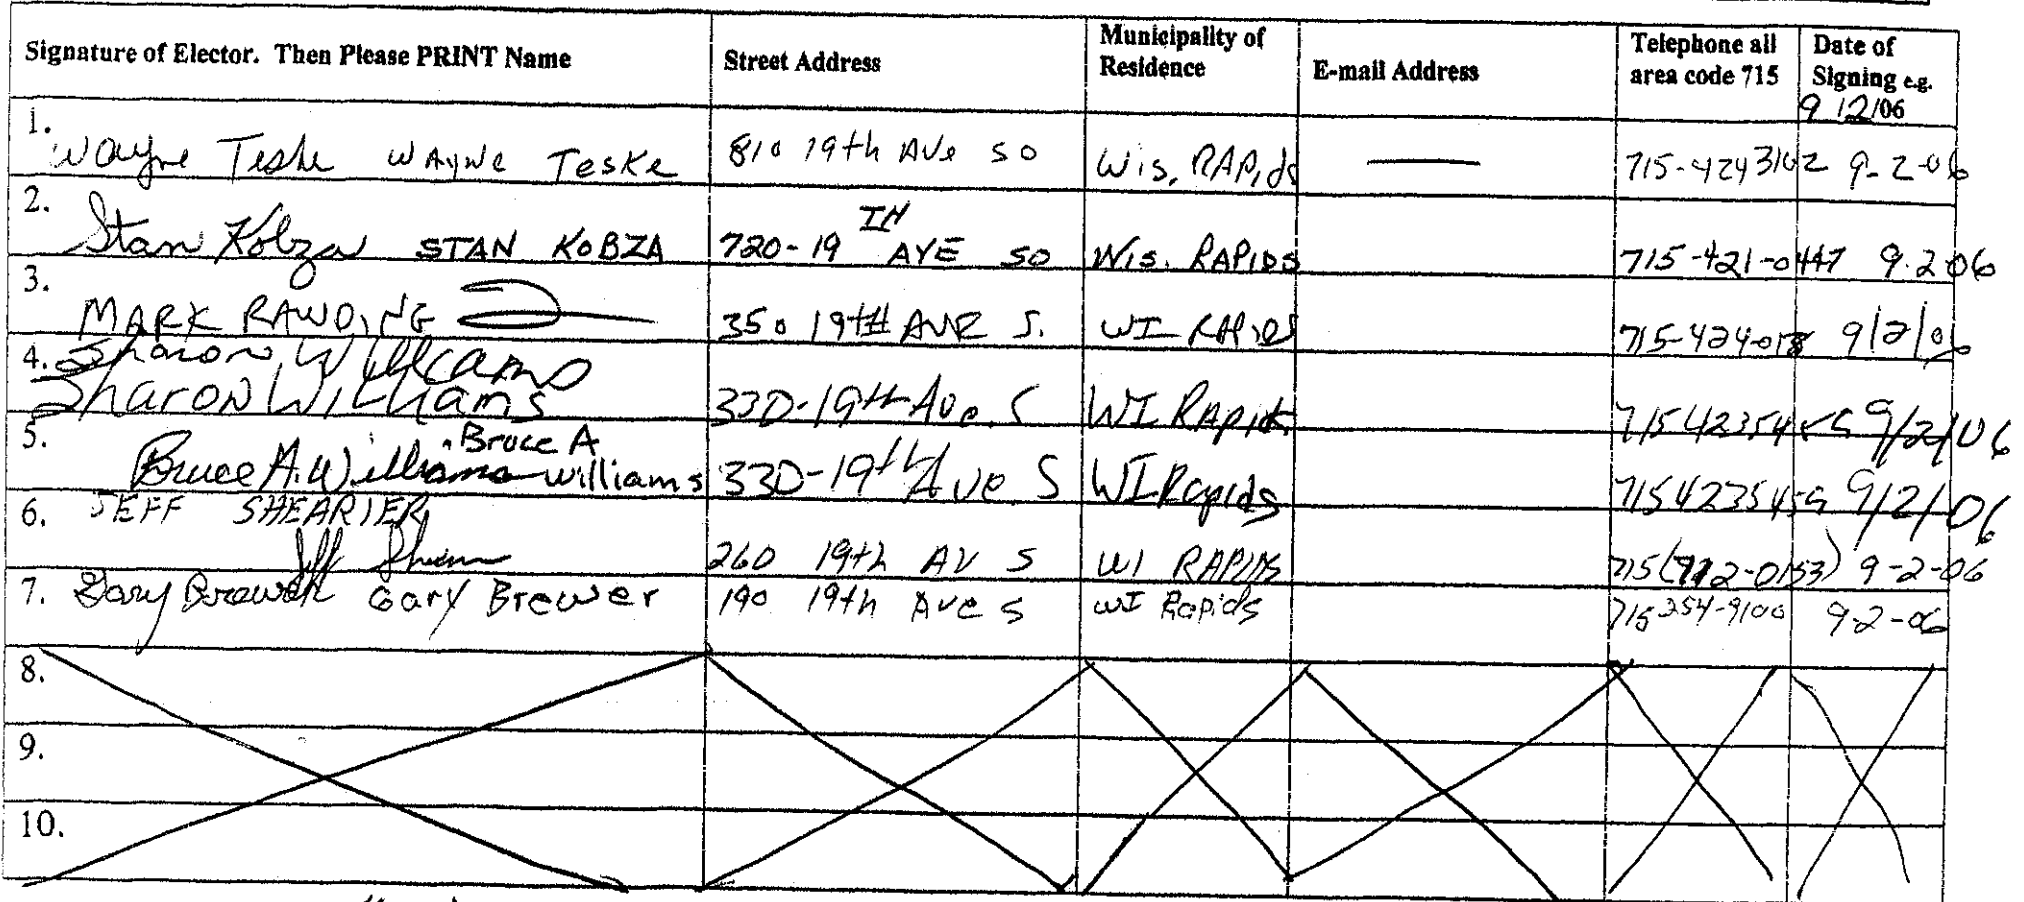 Signature of Elector. Then Please PRINT Name Street Address Municipality of Residence E-mail Address Telephone all area code 715 Date of Signing e.g. 9/2/06
1. Wayne Teske WAYNE Teske 810 19th Ave so Wis. RAPids — 715-424 3102 9-2-06
2. Stan Kobza STAN KOBZA 720-19 TH AVE SO Wis. RAPIDS 715-421-0447 9.2.06
3. MARK RAWDING 350 19TH AVE S. WI RAPIDS 715-424-018 9/2/06
4. Sharon Williams
Sharon Williams 330-19th Ave. S WI Rapids 715423545 9/2/06
5. Bruce A. Williams Bruce A Williams 330-19th Ave S WI Rapids 7154235459 9/2/06
6. JEFF SHEARIER
Jeff 260 19th AV S WI RAPIDS 715(712-0153) 9-2-06
7. Gary Brewer Gary Brewer 190 19th Ave S WI Rapids 715 254-9100 9-2-06
8.
9.
10.